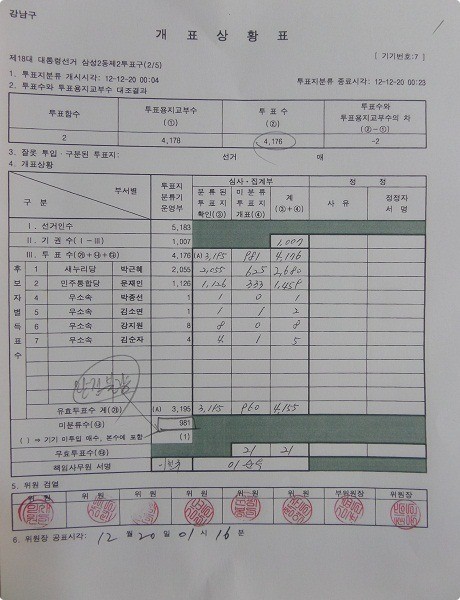 강남구
개 표 상 황 표
[ 기기번호:7 ]
제18대 대통령선거 삼성2동제2투표구(2/5)
1. 투표지분류 개시시각: 12-12-20 00:04 투표지분류 종료시각: 12-12-20 00:23
2. 투표수와 투표용지교부수 대조결과
투표함수 투표용지교부수 (①) 투 표 수 (②) 투표수와 투표용지교부수의 차 (②-①)
2 4,178 4,176 -2
3. 잘못 투입·구분된 투표지: 선거 매
4. 개표상황
구 분 부서별 투표지 분류기 운영부 심사·집계부 정 정
분 류 된 투 표 지 확인(③) 미 분 류 투 표 지 개표(④) 계 (③+④) 사 유 정정자 서 명
Ⅰ. 선거인수 5,183
Ⅱ. 기 권 수 (Ⅰ-Ⅲ) 1,007 1,007
Ⅲ. 투 표 수 4,176 (A) 3,195 981 4,176
후보자별 득표수
1 새누리당 박근혜 2,055 2,055 625 2,680
2 민주통합당 문재인 1,126 1,126 333 1,459
4 무소속 박종선 1 1 0 1
5 무소속 김소연 1 1 1 2
6 무소속 강지원 8 8 0 8
7 무소속 김순자 4 4 1 5
유효투표수 계 (A) 3,195 3,195 960 4,155
미분류수 981
( ) → 기기 미투입 매수, 본수에 포함 (1)
무효투표수 21 21
책임사무원 서명
5. 위원 검열
위 원 위 원 위 원 위 원 위 원 위 원 부위원장 위원장
6. 위원장 공표시각: 12 월 20 일 01 시 16 분